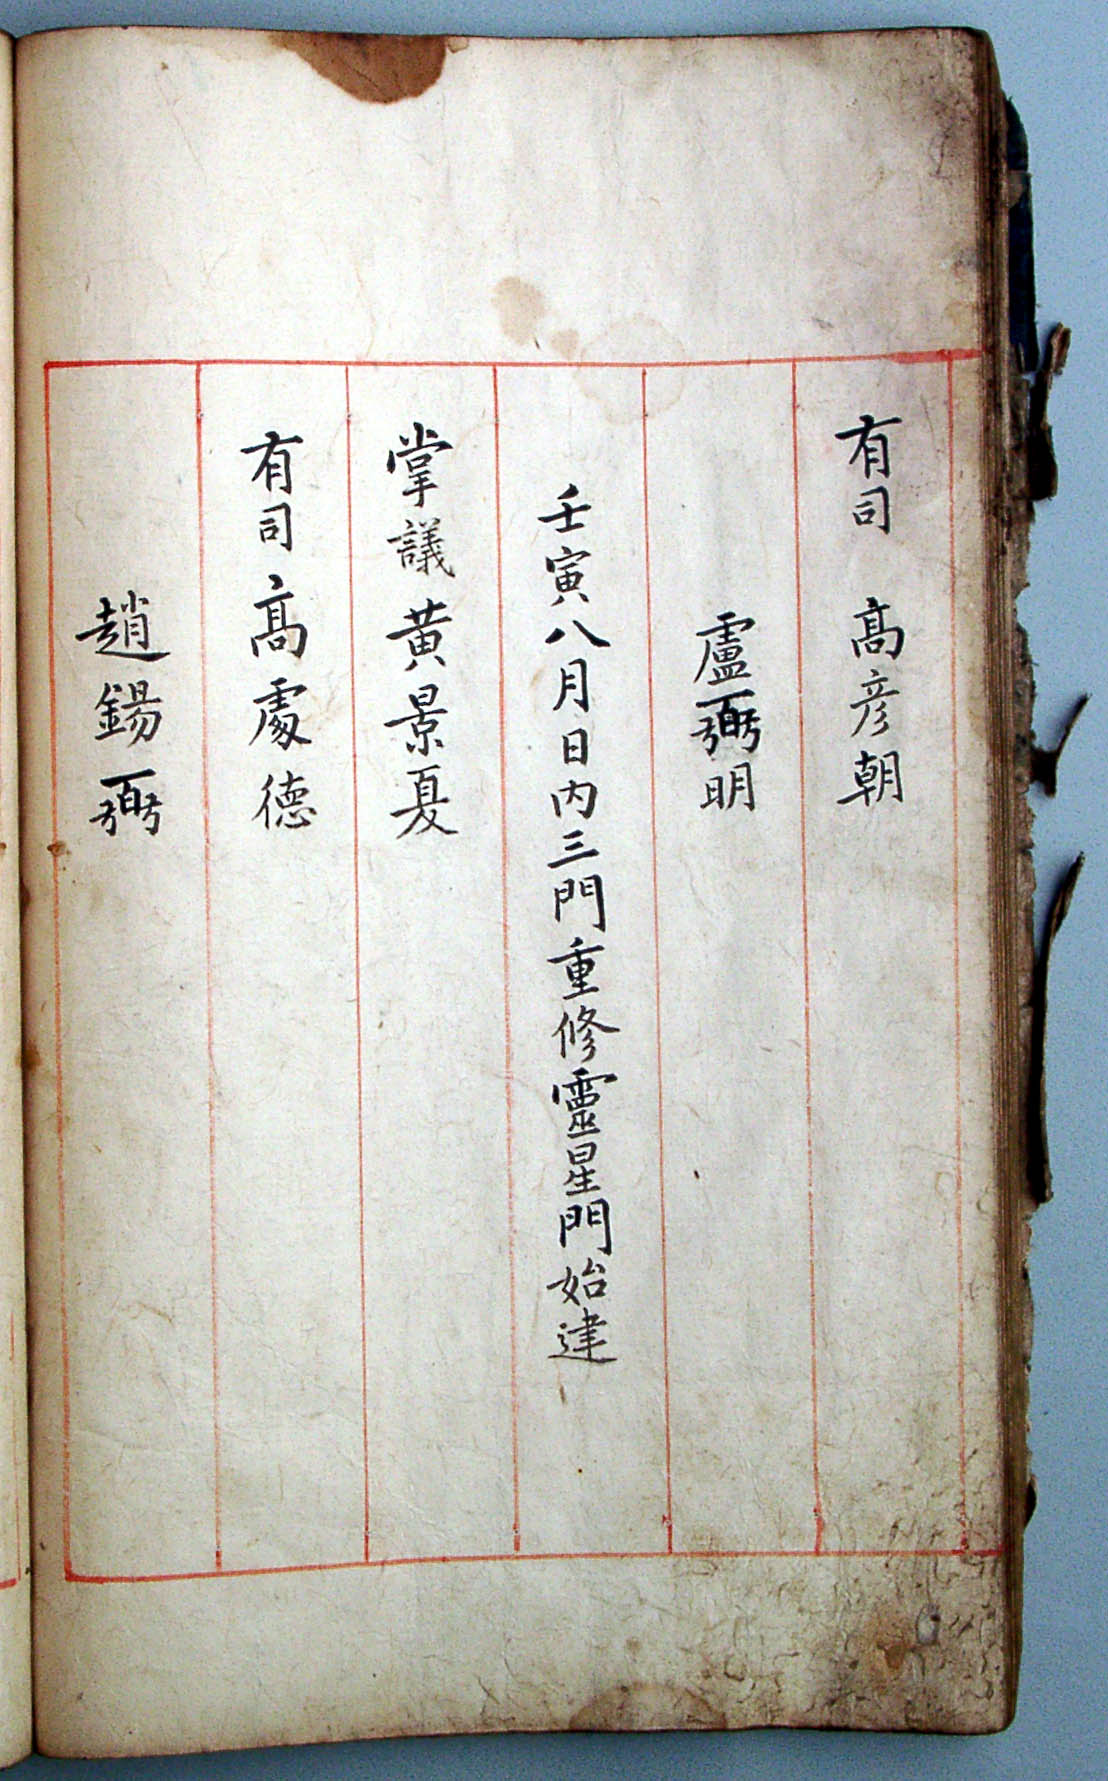 有司 高彦朝
盧弼明
壬寅八月日内三門重修靈星門始建
掌議黄景夏
有司高處德
趙錫弼